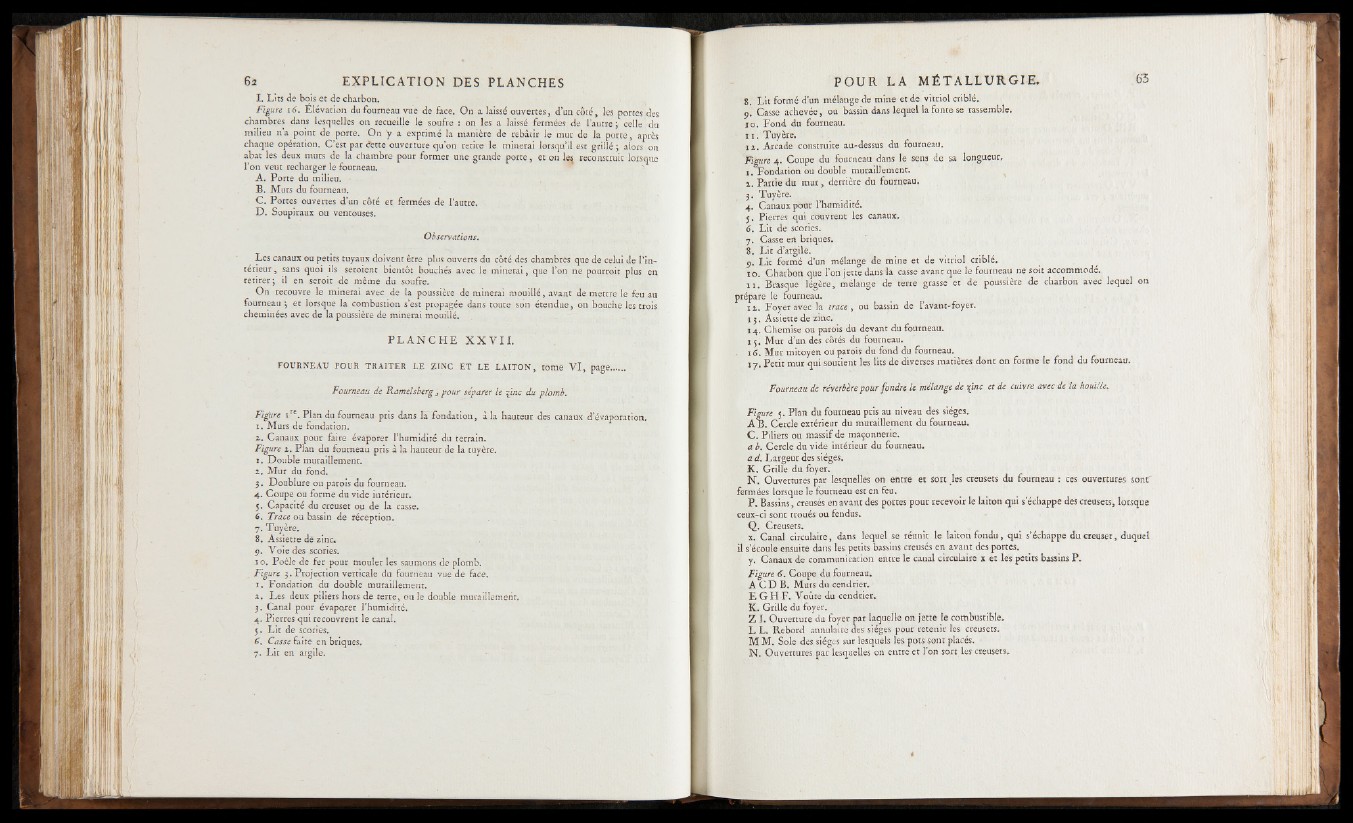 62 EXPLICATION DES PLANCHES
I. Lits de bois et de charbon.
Figure 16. Élévation du fourneau vue de face. On a laissé ouvertes, d'un côté, les portes des
chambres dans lesquelles on recueille le soufre : on les a laissé fermées de l'autre ; celle du
milieu n'a point de porte. On y a exprimé la manière de rebâtir le mur de la porte, après
chaque opération. C'est par cette ouverture qu'on retire le minerai lorsqu'il est grillé ; alors on
abat les deux murs de la chambre pour former une grande porte, et on les reconstruit lorsque
l'on veut recharger le fourneau.
A. Porte du milieu.
B. Murs du fourneau.
C. Portes ouvertes d'un côté et fermées de l'autre.
D. Soupiraux ou ventouses.
Observations.
Les canaux ou petits tuyaux doivent être plus ouverts du côté des chambres que de celui de l'in-
térieur, sans quoi ils seroient bientôt bouchés avec le minerai, que l'on ne pourroit plus en
retirer ; il en seroit de même du soufre.
On recouvre le minerai avec de la poussière de minerai mouillé, avant de mettre le feu au
fourneau ; et lorsque la combustion s'est propagée dans toute son étendue, on bouche les trois
cheminées avec de la poussière de minerai mouillé.
PLANCHE XXVII.
FOURNEAU POUR TRAITER LE ZINC ET LE LAITON, tome VI, page......
Fourneau de Ramelsberg, pour séparer le zinc du plomb.
Figure 1re. Plan du fourneau pris dans la fondation, à la hauteur des canaux d'évaporation.
1. Murs de fondation.
2. Canaux pour faire évaporer l'humidité du terrain.
Figure 2. Plan du fourneau pris à la hauteur de la tuyère.
1. Double muraillement.
2. Mur du fond.
3. Doublure ou parois du fourneau.
4. Coupe ou forme du vide intérieur.
5. Capacité du creuset ou de la casse.
6. Trace ou bassin de réception.
7. Tuyère.
8. Assiette de zinc.
9. Voie des scories.
10. Poële de fer pour mouler les saumons de plomb.
Figure 3. Projection verticale du fourneau vue de face.
1. Fondation du double muraillement.
2. Les deux piliers hors de terre, ou le double muraillement.
3. Canal pour évaporer l'humidité.
4. Pierres qui recouvrent le canal.
5. Lit de scories.
6. Casse faite en briques.
7. Lit en argile.
POUR LA MÉTALLURGIE. 63
8. Lit formé d'un mélange de mine et de vitriol criblé.
9. Casse achevée, ou bassin dans lequel la fonte se rassemble.
10. Fond du fourneau.
11. Tuyère.
12. Arcade construite au-dessus du fourneau.
Figure 4. Coupe du fourneau dans le sens de sa longueur.
1. Fondation ou double muraillement.
2. Partie du mur, derrière du fourneau.
3. Tuyère.
4. Canaux pour l'humidité.
5. Pierres qui couvrent les canaux.
6. Lit de scories.
7. Casse en briques.
8. Lit d'argile.
9. Lit formé d'un mélange de mine et de vitriol criblé.
10. Charbon que l'on jette dans la casse avant que le fourneau ne soit accommodé.
11. Brasque légère, mélange de terre grasse et de poussière de charbon avec lequel on
prépare le fourneau.
12. Foyer avec la trace, ou bassin de l'avant-foyer.
13. Assiette de zinc.
14. Chemise ou parois du devant du fourneau.
15. Mur d'un des côtés du fourneau.
16. Mur mitoyen ou parois du fond du fourneau.
17. Petit mur qui soutient les lits de diverses matières dont on forme le fond du fourneau.
Fourneau de réverbère pour fondre le mélange de zinc et de cuivre avec de la houille.
Figure 5. Plan du fourneau pris au niveau des siéges.
A B. Cercle extérieur du muraillement du fourneau.
C. Piliers ou massif de maçonnerie.
a b. Cercle du vide intérieur du fourneau.
a d. Largeur des siéges.
K. Grille du foyer.
N. Ouvertures par lesquelles on entre et sort les creusets du fourneau : ces ouvertures sont
fermées lorsque le fourneau est en feu.
P. Bassins, creusés en avant des portes pour recevoir le laiton qui s'échappe des creusets, lorsque
ceux-ci sont troués ou fendus.
Q. Creusets.
x. Canal circulaire, dans lequel se réunit le laiton fondu, qui s'échappe du creuset, duquel
il s'écoule ensuite dans les petits bassins creusés en avant des portes.
y. Canaux de communication entre le canal circulaire x et les petits bassins P.
Figure 6. Coupe du fourneau.
A C D B. Murs du cendrier.
E G H F. Voûte du cendrier.
K. Grille du foyer.
Z I. Ouverture du foyer par laquelle on jette le combustible.
L L. Rebord annulaire des siéges pour retenir les creusets.
M M. Sole des siéges sur lesquels les pots sont placés.
N. Ouvertures par lesquelles on entre et l'on sort les creusets.